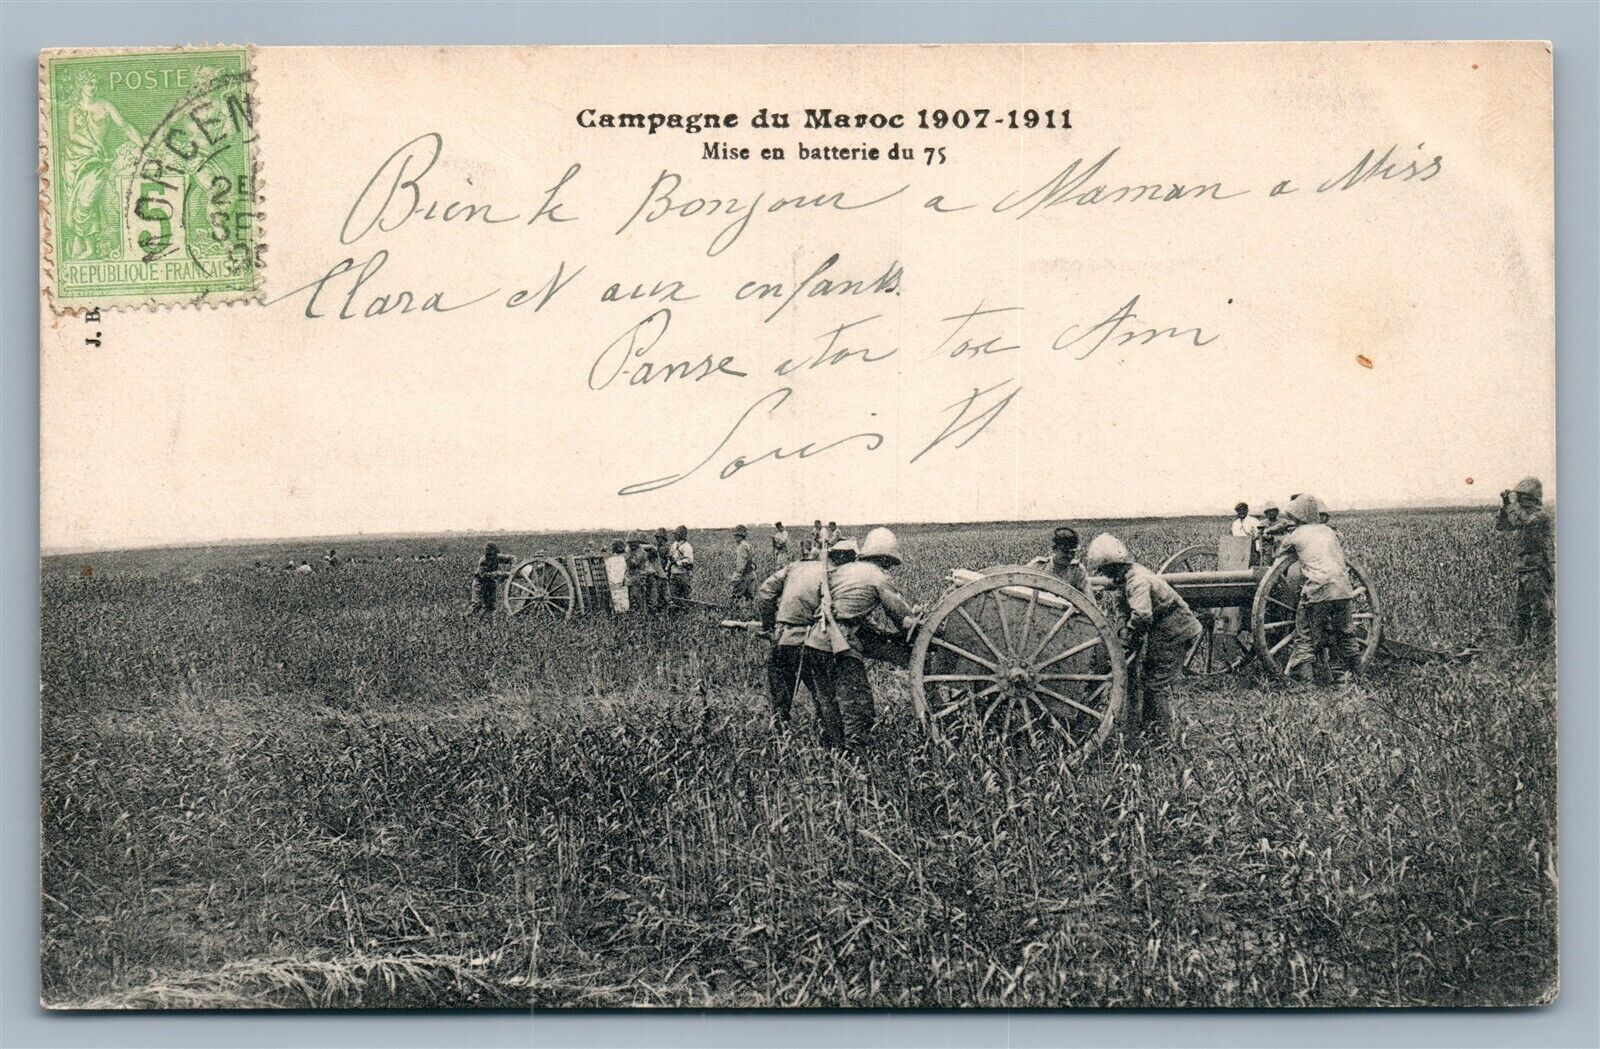 POSTE
5
REPUBLIQUE FRANCAISE
MORCEN
2E
SE
J. B
Campagne du Maroc 1907-1911
Mise en batterie du 75
Bien le Bonjour a Maman a Miss
Clara et aux enfants.
Panse a toi ton Ami
Louis